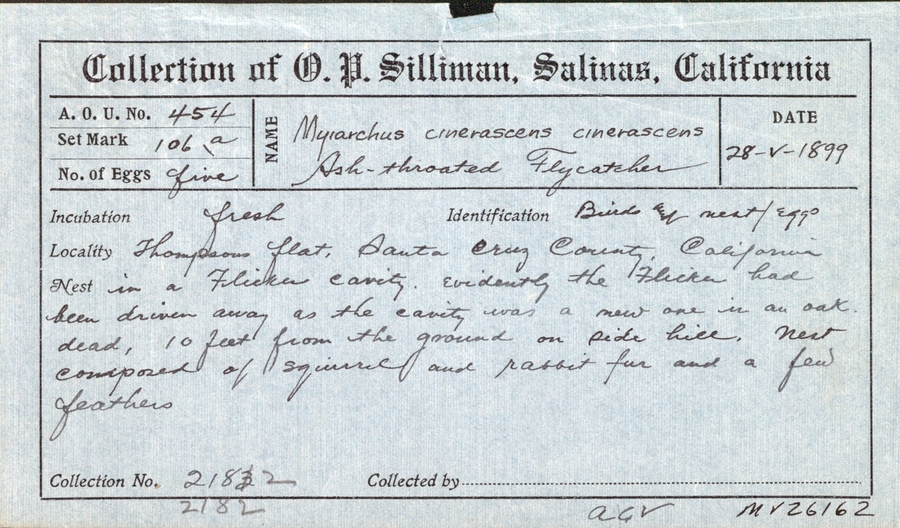 Collection of O. P. Silliman, Salinas, California
A. O. U. No. 454
Set Mark 106 a
No. of Eggs five
NAME
Myiarchus cinerascens cinerascens
Ash-throated Flycatcher
DATE
28-V-1899
Incubation fresh Identification Birds nest/Eggs
Locality Thompsons flat, Santa Cruz County, California
Nest in a Flicker cavity. Evidently the Flicker had
been driven away as the cavity was a new one in an oak
dead, 10 feet from the ground on side hill. Nest
composed of squirrel and rabbit fur and a few
feathers
Collection No. 2182 Collected by
2182 MV26162